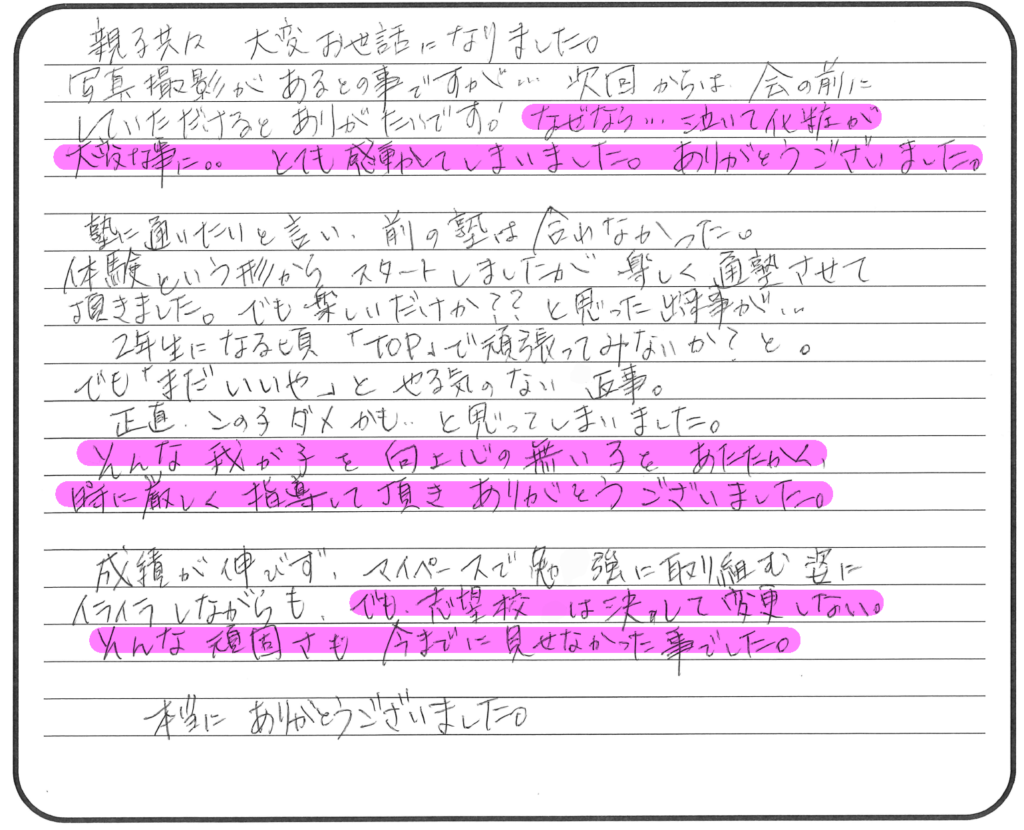 親子共に 大変お世話になりました。
写真撮影があるとの事ですが… 次回からは、会の前に
していただけるとありがたいです! なぜなら… 泣いて化粧が
大変な事に。。 とても感動してしまいました。 ありがとうございました。
塾に通いたいと言い、前の塾は合わなかった。
体験という形から スタートしましたが 楽しく通塾させて
頂きました。でも楽しいだけか?? と思った出来事が…
2年生になる頃 「TOP」で頑張ってみないか? と。
でも「まだいいや」と やる気のない 返事。
正直、この子ダメかも… と思ってしまいました。
そんな我が子を 向上心の無い子を あたたかく、
時に厳しく 指導して頂き ありがとうございました。
成績が伸びず、マイペースで勉強に取り組む姿に
イライラしながらも、でも、志望校は決して変更しない。
そんな頑固さも 今までに見せなかった事でした。
本当に ありがとうございました。